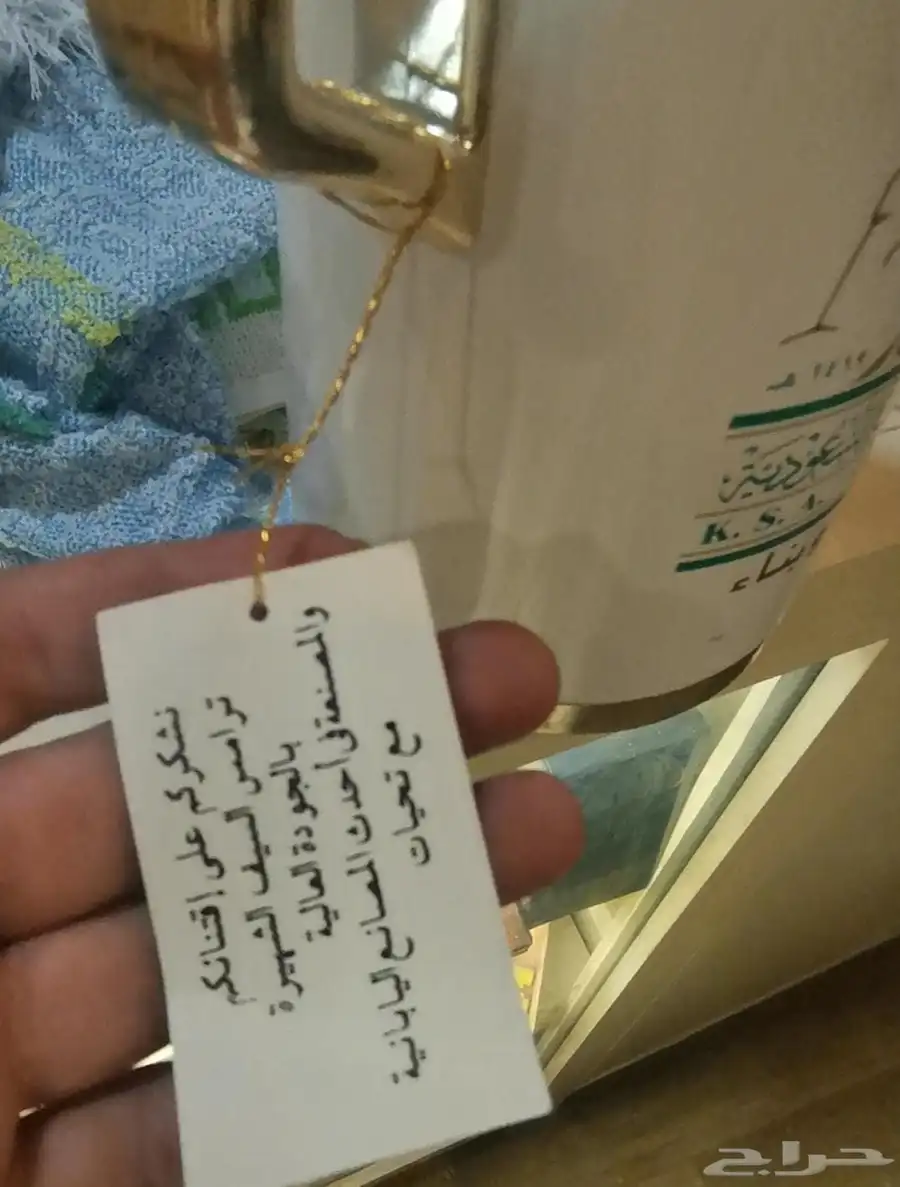 نشكركم على إقتنائكم
ترامس السيف الشهيرة
بالجودة العالية
والمصنعة في أحدث المصانع اليابانية
مع تحيات
١٤١٩ هـ
K. S. A.
حراج